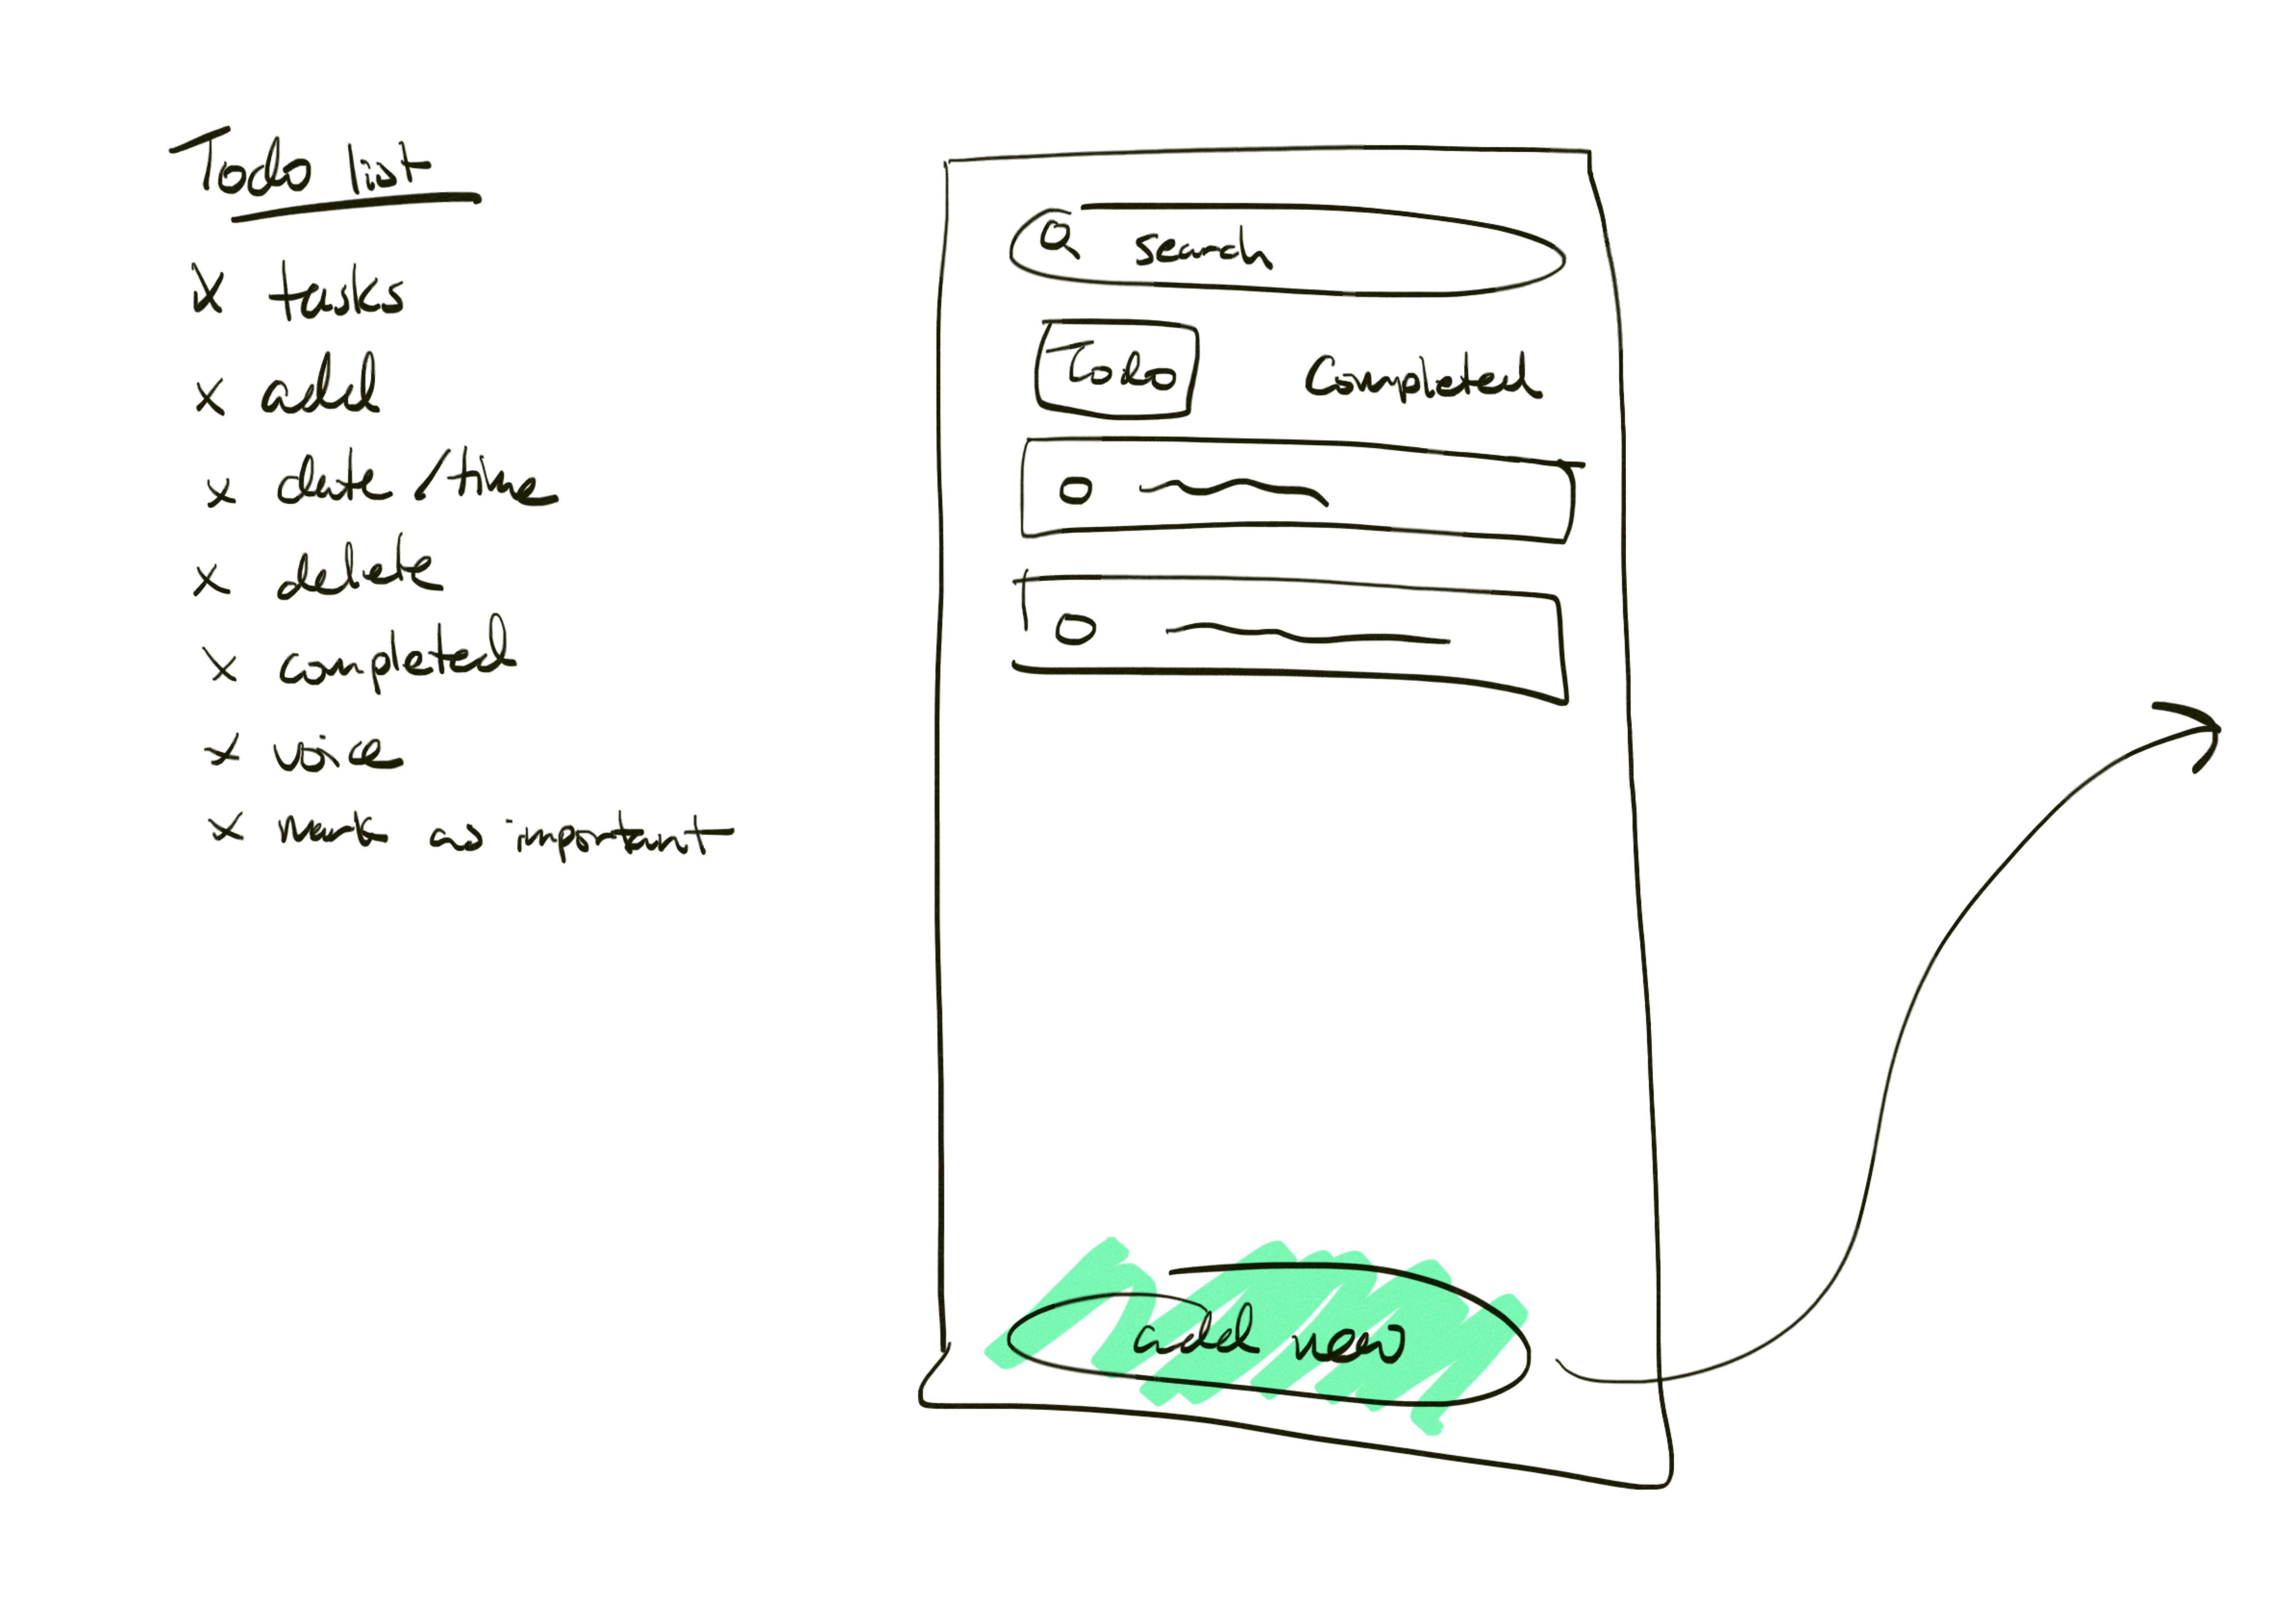 Todo list
x tasks
x add
x date / time
x delete
x completed
x voice
x mark as important
search
Todo Completed
add new